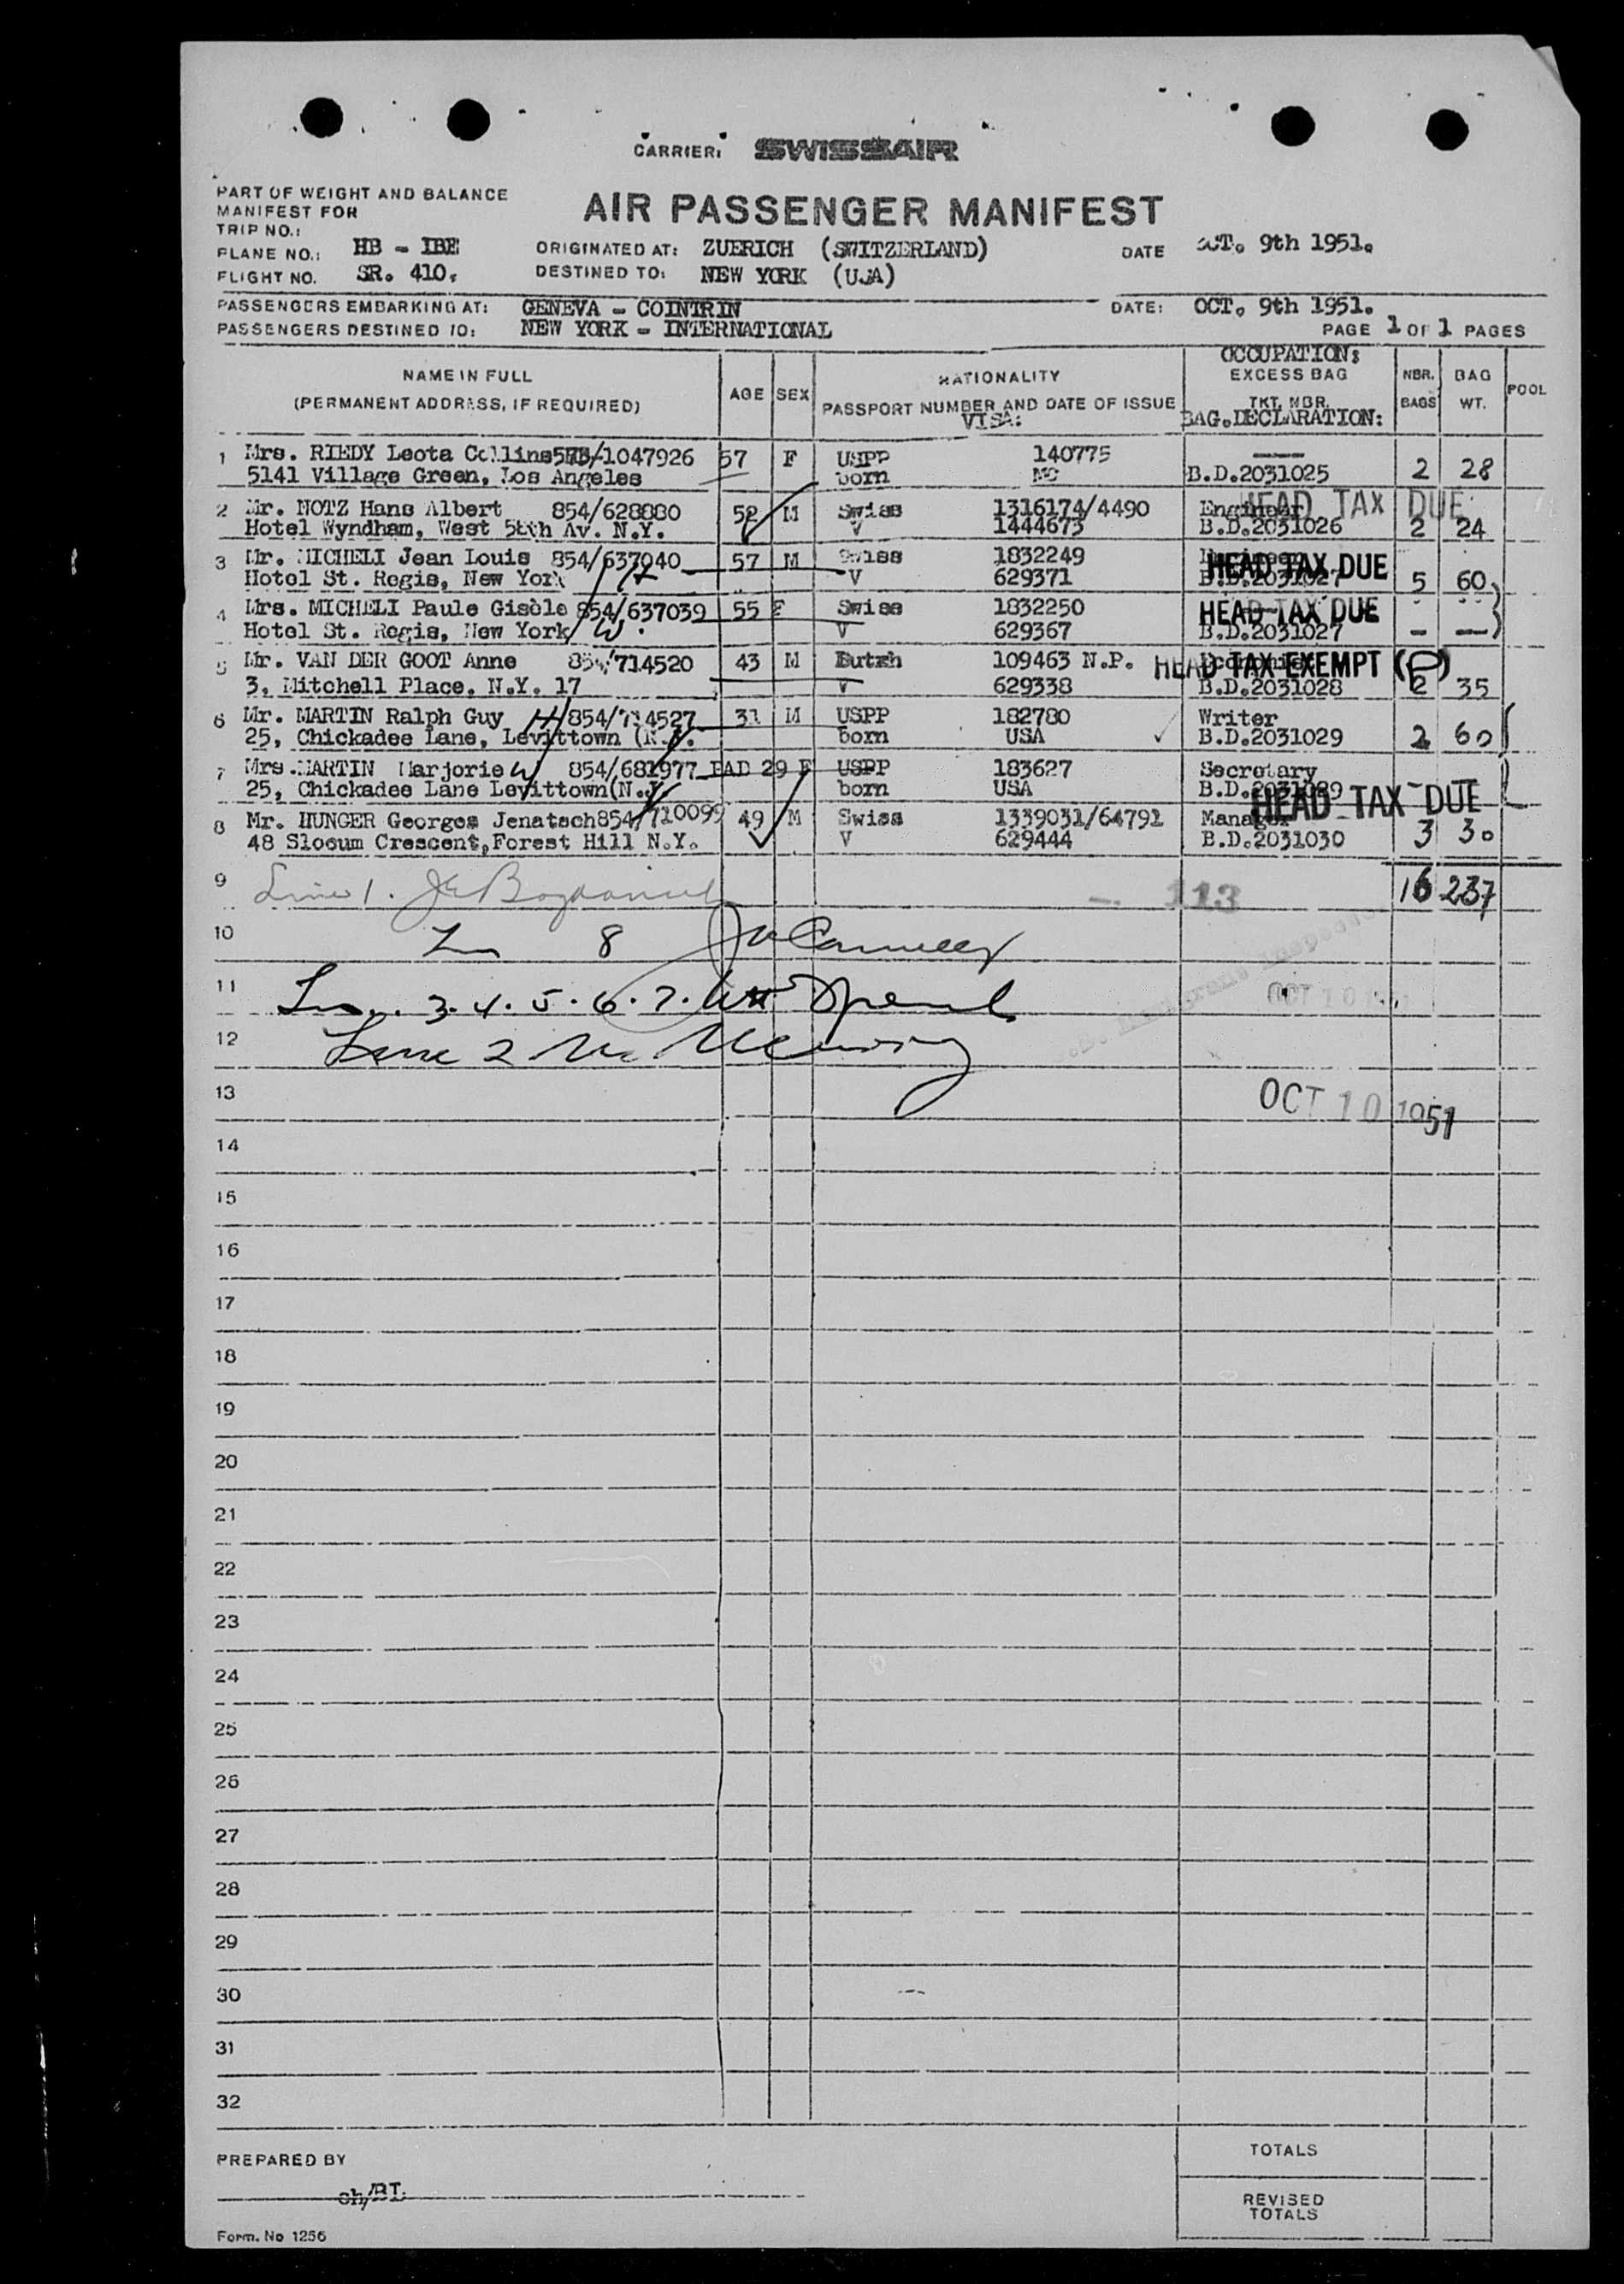 CARRIER: SWISSAIR
PART OF WEIGHT AND BALANCE
MANIFEST FOR
TRIP NO.:
AIR PASSENGER MANIFEST
PLANE NO.: HB - IBE ORIGINATED AT: ZUERICH (SWITZERLAND) DATE OCT. 9th 1951.
FLIGHT NO. SR. 410. DESTINED TO: NEW YORK (USA)
PASSENGERS EMBARKING AT: GENEVA - COINTRIN DATE: OCT. 9th 1951.
PASSENGERS DESTINED TO: NEW YORK - INTERNATIONAL PAGE 1 OF 1 PAGES
NAME IN FULL
(PERMANENT ADDRESS, IF REQUIRED)
AGE SEX
NATIONALITY
PASSPORT NUMBER AND DATE OF ISSUE
VISA:
OCCUPATION:
EXCESS BAG
TKT. NBR.
BAG.DECLARATION:
NBR. BAGS
BAG WT.
POOL
1 Mrs. RIEDY Leota Collins /1047926 57 F USPP 140775
5141 Village Green, Los Angeles born MO B.D.2031025 2 28
2 Mr. NOTZ Hans Albert 854/628880 52 M Swiss 1316174/4490 Engineer HEAD TAX DUE
Hotel Wyndham, West 58th Av. N.Y. V 1444673 B.D.2031026 2 24
3 Mr. MICHELI Jean Louis 854/637040 57 M Swiss 1832249 HEAD TAX DUE
Hotel St. Regis, New York V 629371 B.D.2031027 5 60
4 Mrs. MICHELI Paule Gisèle 854/637039 55 F Swiss 1832250 HEAD TAX DUE
Hotel St. Regis, New York W. V 629367 B.D.2031027 - -
5 Mr. VAN DER GOOT Anne 854/714520 43 M Dutch 109463 N.P. Economist HEAD TAX EXEMPT (P)
3, Mitchell Place, N.Y. 17 V 629338 B.D.2031028 2 35
6 Mr. MARTIN Ralph Guy H 854/714527 31 M USPP 182780 Writer
25, Chickadee Lane, Levittown (N.Y. born USA B.D.2031029 2 60
7 Mrs. MARTIN Marjorie W 854/681977 BAD 29 F USPP 183627 Secretary
25, Chickadee Lane Levittown(N.Y. born USA B.D.2031029
HEAD TAX DUE
8 Mr. HUNGER Georges Jenatsch 854/710099 49 M Swiss 1339031/64791 Manager
48 Slocum Crescent, Forest Hill N.Y. V 629444 B.D.2031030 3 30
9 Line 1. 113 16 237
10 8
11 3. 4. 5. 6. 7. OCT 10
12 Line 2
13 OCT 10 1951
14
15
16
17
18
19
20
21
22
23
24
25
26
27
28
29
30
31
32
PREPARED BY
ch/BT.
TOTALS
REVISED TOTALS
Form. No 1256